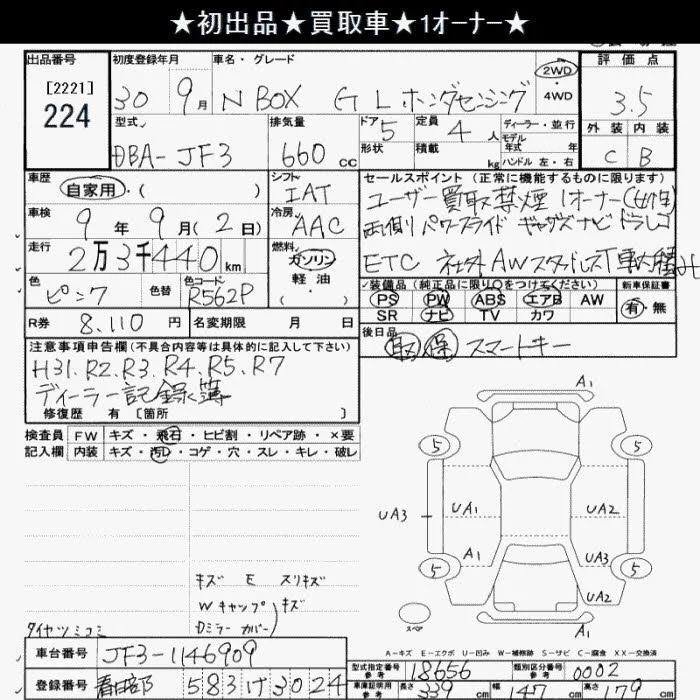 ★初出品★買取車★1オーナー★
出品番号
[2221]
224
初度登録年月
30 9月
車名・グレード
N BOX G Lホンダセンシング
2WD
4WD
評価点
3.5
外装 内装
C B
型式
DBA-JF3
排気量
660 cc
ドア 5
形状
定員 4人
積載 kg
ディーラー・並行
モデル年式 年式
ハンドル 左・右
車歴
自家用・( )
シフト
IAT
車検
9年9月(2日)
冷房
AAC
走行
2万3千440km
燃料
ガソリン
軽油
( ・ )
色
ピンク
色替
色コード
R562P
R券 8.110円
名変期限 月 日
セールスポイント (正常に機能するものに限ります)
ユーザー買取 禁煙 1オーナー(女性)
両側パワースライド ギャザズナビ ドラレコ
ETC 社外AWスタッドレスT車内積み
装備品 (純正品に限り○をつけてください)
PS PW ABS エアB AW
SR ナビ TV カワ
新車保証書
有・無
後日品
取 保 スマートキー
注意事項申告欄(不具合内容等は具体的に記入して下さい)
H31.R2.R3.R4.R5.R7
ディーラー記録簿
修復歴 有 [箇所 ]
検査員記入欄
FW キズ・飛石・ヒビ割・リペア跡・×要
内装 キズ・汚レ・コゲ・穴・スレ・キレ・破レ
A1
5 5
UA3 UA1 UA2
A1 UA3
5 5
UA2
スペア
A1
キズ E スリキズ
Wキャップ キズ
Dミラーカバー
タイヤツミコミ
A-キズ E-エクボ U-凹み W-補修跡 S-サビ C-腐食 XX-交換済
車台番号 JF3-1146909
登録番号 春日部 583 け 3024
型式指定番号 参考 18656
類別区分番号 参考 0002
車庫証明用 参考 長さ 339cm 幅 147cm 高さ 179cm